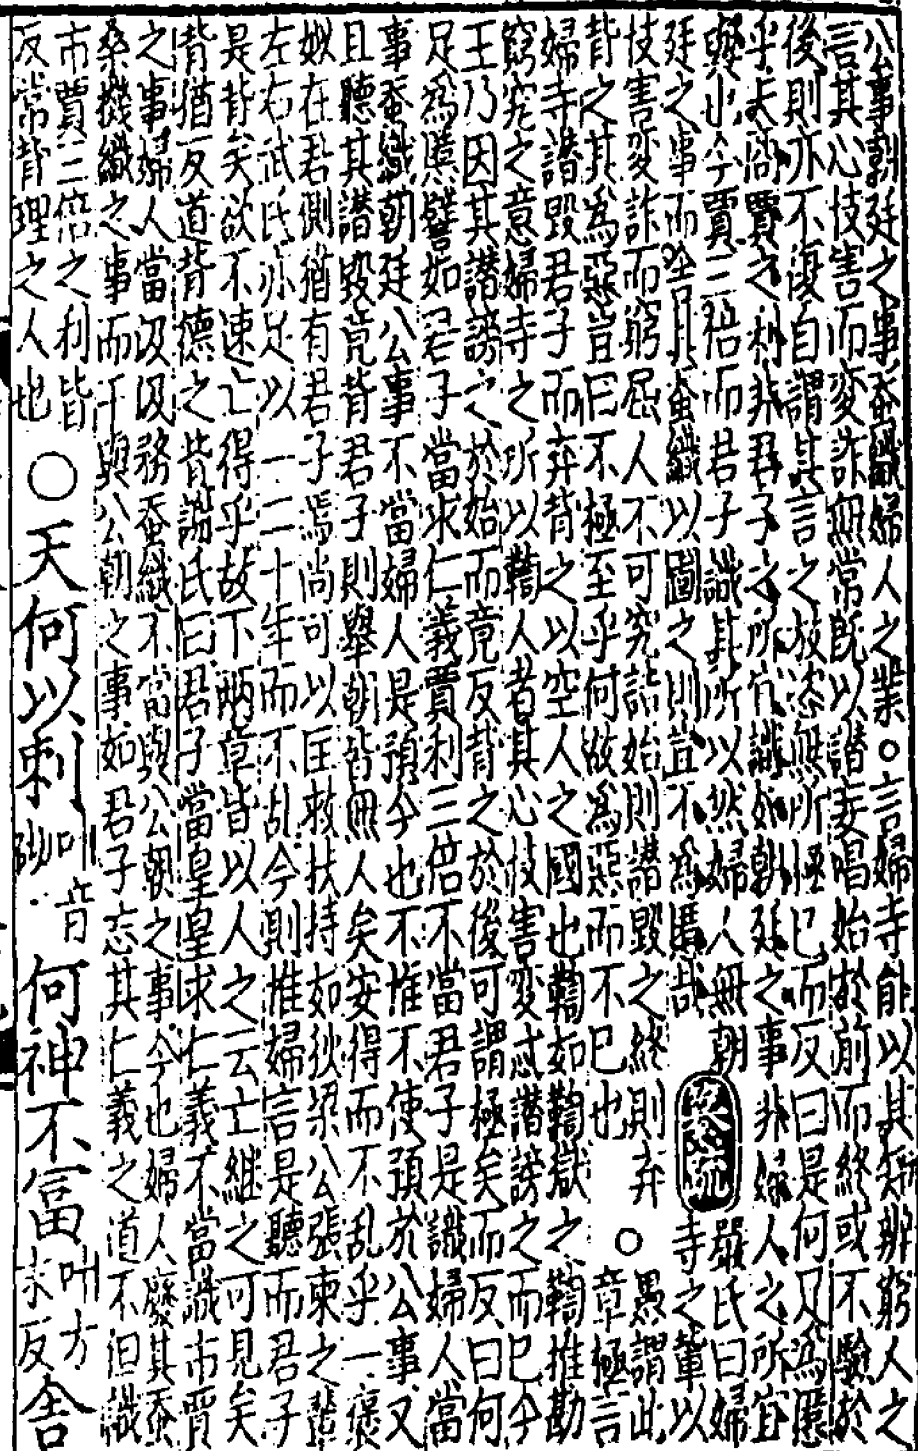 公事朝廷之事蚕織婦人之業○言婦寺能以其智辯窮人之
言其心忮害而変詐無常既以譖妄唱始於前而終或不驗於
後則亦不復自謂其言之放恣無所極已而反曰是何足為慝
乎夫商賈之利非君子之所宜識如朝廷之事非婦人之所宜
與也今賈三倍而君子識其所以然婦人無朝
廷之事而舍其蚕織以圖之則豈不為慝哉
嚴氏曰婦
寺之輩以
忮害変詐而窮屈人不可究詰始則譖毀之終則弃
背之其為惡豈曰不極至乎何故為惡而不已也
○愚謂此
章極言
婦寺譖毀君子而弃背之以空人之國也鞫如鞫獄之鞫推勘
窮究之意婦寺之所以鞫人者其心忮害変忒譖謗之而已今
王乃因其譖謗之於始而竟反背之於後可謂極矣而反曰何
足為慝譬如君子當求仁義賈利三倍不當君子是識婦人當
事蚕織朝廷公事不當婦人是預今也不惟不使預於公事又
且聽其譖毀竟背君子則舉朝皆無人矣安得而不乱乎一褒
姒在君側猶有君子焉尚可以匡救扶持如狄梁公張柬之輩
左右武氏亦足以一二十年而不乱今則惟婦言是聽而君子
是背矣欲不速亡得乎故下兩章皆以人之云亡継之可見矣
背猶反道背德之背謝氏曰君子當皇皇求仁義不當識市賈
之事婦人當汲汲務蚕織不當與公朝之事今也婦人廢其蚕
桑機織之事而干與公朝之事如君子忘其仁義之道不但識
市賈三倍之利皆
反常背理之人也
○天何以刺叶音砌何神不富叶方未反舍